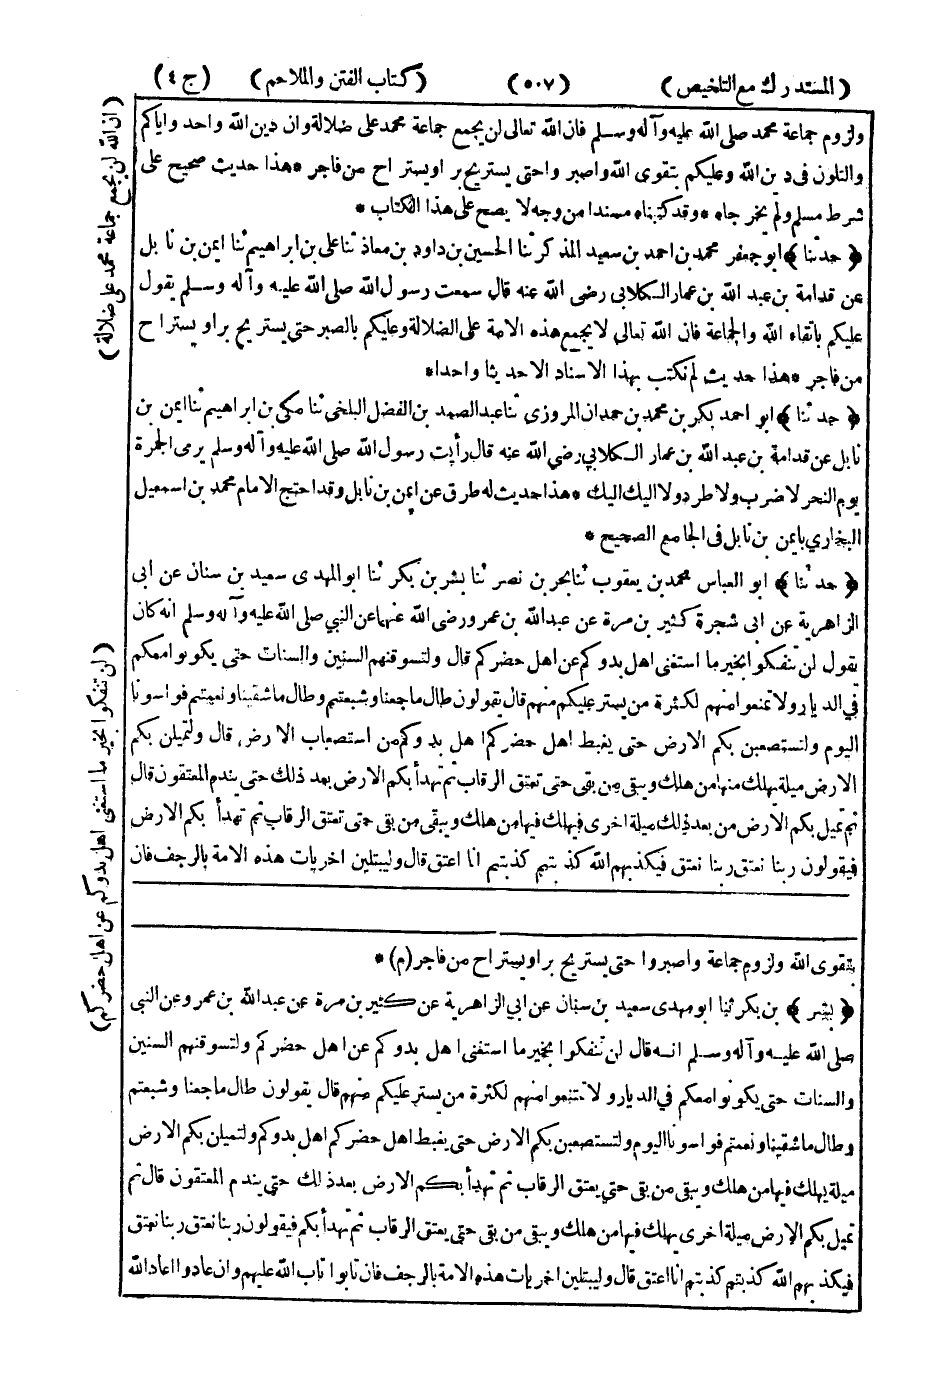 (المستدرك مع التلخيص) (٥٠٧) (كتاب الفتن والملاحم) (ج ٤)
ولزوم جماعة محمد صلى الله عليه وآله وسلم فان الله تعالى لن يجمع جماعة محمد على ضلالة وان دين الله واحد واياكم
والتلون فى دين الله وعليكم بتقوى الله واصبر واحتى يستريح بر او يستراح من فاجر * هذا حديث صحيح على
شرط مسلم ولم يخرجاه * وقد كتبناه مسندا من وجه لا يصح على هذا الكتاب *
﴿ حدثنا ﴾ ابو جعفر محمد بن احمد بن سعيد المذكر ثنا الحسين بن داود بن معاذ ثنا على بن ابراهيم ثنا ايمن بن نابل
عن قدامة بن عبد الله بن عمار الكلابى رضى الله عنه قال سمعت رسول الله صلى الله عليه وآله وسلم يقول
عليكم باتقاء الله والجماعة فان الله تعالى لا يجمع هذه الامة على الضلالة وعليكم بالصبر حتى يستريح بر او يستراح
من فاجر * هذا حديث لم نكتب بهذا الاسناد الا حديثا واحدا *
﴿ حدثنا ﴾ ابو احمد بكر بن محمد بن حمدان المروزى ثنا عبد الصمد بن الفضل البلخى ثنا مكى بن ابراهيم ثنا ايمن بن
نابل عن قدامة بن عبد الله بن عمار الكلابي رضى الله عنه قال رأيت رسول الله صلى الله عليه وآله وسلم يرمى الجمرة
يوم النحر لا ضرب ولا طرد ولا اليك اليك * هذا حديث له طرق عن ايمن بن نابل وقد احتج الامام محمد بن اسمعيل
البخاري بايمن بن نابل فى الجامع الصحيح *
﴿ حدثنا ﴾ ابو العباس محمد بن يعقوب ثنا بحر بن نصر ثنا بشر بن بكر ثنا ابو المهدى سعيد بن سنان عن ابى
الزاهرية عن ابى شجرة كثير بن مرة عن عبد الله بن عمرو رضى الله عنهما عن النبي صلى الله عليه وآله وسلم انه كان
يقول لن تنفكوا بخير ما استغنى اهل بدوكم عن اهل حضركم قال ولتسوقنهم السنين والسنات حتى يكونوا معكم
فى الديار ولا تمنعوا منهم لكثرة من يستر عليكم منهم قال يقولون طال ما جعنا وشبعتم وطال ما شقينا ونعمتم فواسونا
اليوم ولتستصعبن بكم الارض حتى يغبط اهل حضركم اهل بدوكم من استصعاب الارض، قال ولتميلن بكم
الارض ميلة يهلك منها من هلك ويبقى من بقى حتى تعتق الرقاب ثم تهدأ بكم الارض بعد ذلك حتى يندم المعتقون قال
ثم تميل بكم الارض من بعد ذلك ميلة اخرى فيهلك فيها من هلك ويبقى من بقى حتى تعتق الرقاب ثم تهدأ بكم الارض
فيقولون ربنا نعتق ربنا نعتق فيكذبهم الله كذبتم كذبتم انا اعتق قال وليبتلين اخريات هذه الامة بالرجف فان
بتقوى الله ولزوم جماعة واصبروا حتى يستريح بر او يستراح من فاجر (م) *
﴿ بشر ﴾ بن بكر ثنا ابو مهدى سعيد بن سنان عن ابي الزاهرية عن كثير بن مرة عن عبد الله بن عمرو عن النبى
صلى الله عليه وآله وسلم انه قال لن تنفكوا بخير ما استغنى اهل بدوكم عن اهل حضركم ولتسوقنهم السنين
والسنات حتى يكونوا معكم في الديار ولا تمتنعوا منهم لكثرة من يستر عليكم منهم قال يقولون طال ما جعنا وشبعتم
وطال ما شقينا ونعمتم فواسونا اليوم ولتستصعبن بكم الارض حتى يغبط اهل حضركم اهل بدوكم ولتميلن بكم الارض
ميلة يهلك فيها من هلك ويبقى من بقى حتى يعتق الرقاب ثم تهدأ بكم الارض بعد ذلك حتى يندم المعتقون قال ثم
تميل بكم الارض ميلة اخرى يهلك فيها من هلك ويبقى من بقى حتى يعتق الرقاب ثم تهدأ بكم فيقولون ربنا نعتق ربنا نعتق
فيكذبهم الله كذبتم كذبتم انا اعتق قال وليبتلين اخريات هذه الامة بالرجف فان تابوا تاب الله عليهم وان عادوا اعاد الله
(ان الله لن يجمع جماعة محمد على ضلالة)
(لن تنفكوا بخير ما استغنى اهل بدوكم عن اهل حضركم)